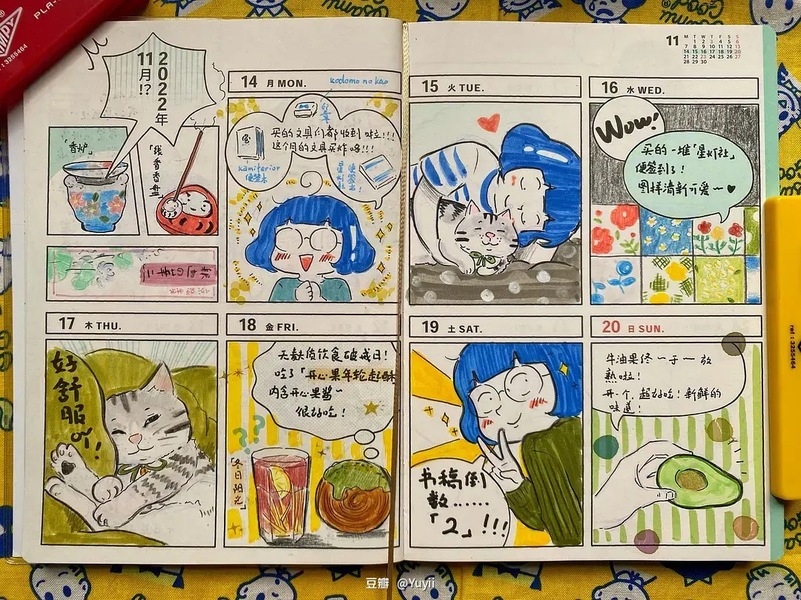 2022年
11月!?
「香炉」
「线香香盘」
14 月 MON.
kodomo no kao
买的文具们都收到啦!!!
这个月的文具买炸了!!!
kamiterior
便签本
15 火 TUE.
11
M T W T F S S
1 2 3 4 5 6
7 8 9 10 11 12 13
14 15 16 17 18 19 20
21 22 23 24 25 26 27
28 29 30
16 水 WED.
Wow!
买的一堆「星灯社」
便签到了!
图样清新可爱～♥
17 木 THU.
好舒服吖!
18 金 FRI.
无麸质饮食破戒日!
吃了「开心果年轮起酥」
内含开心果酱～
很好吃!
??
冬日阳光
19 土 SAT.
书稿倒
数……
「2」!!!
20 日 SUN.
牛油果终～于～放
熟啦!
开一个,超好吃!新鲜的
味道!
豆瓣 @Yuyii